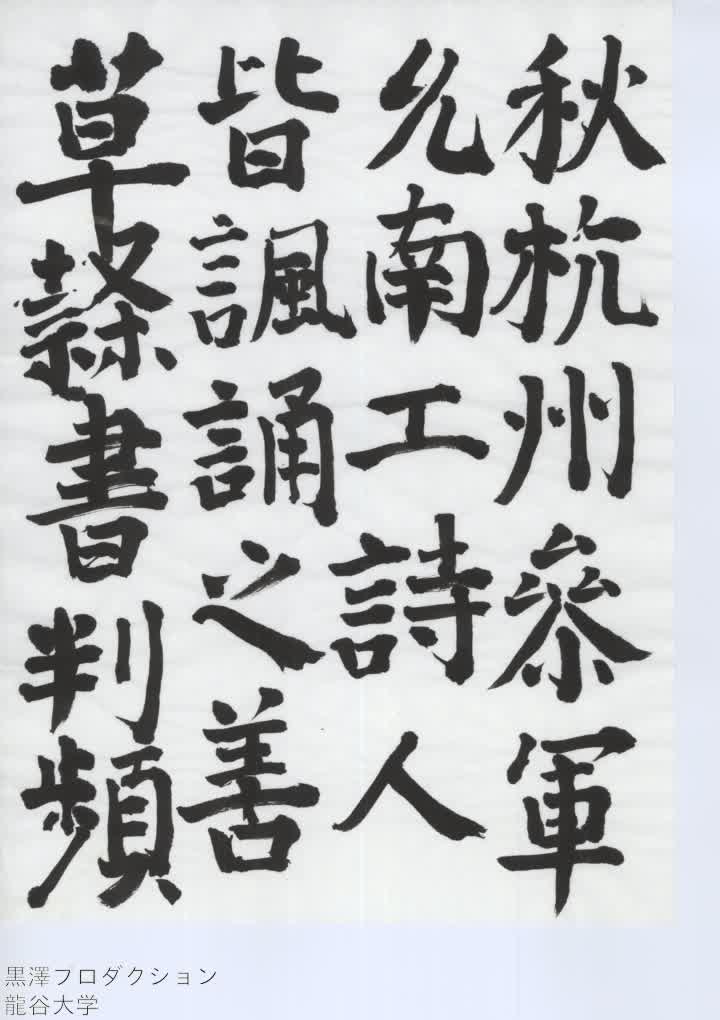 秋杭州參軍
允南工詩人
皆諷誦之善
草隸書判頻
黒澤プロダクション
龍谷大学